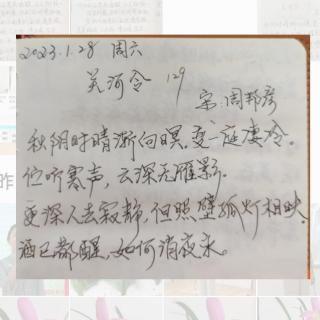 2023.1.28 周六
关河令 129
宋:周邦彦
秋阴时晴渐向暝.变一庭凄冷。
伫听寒声,云深无雁影.
更深人去寂静,但照壁孤灯相映.
酒已都醒,如何消夜永。
昨